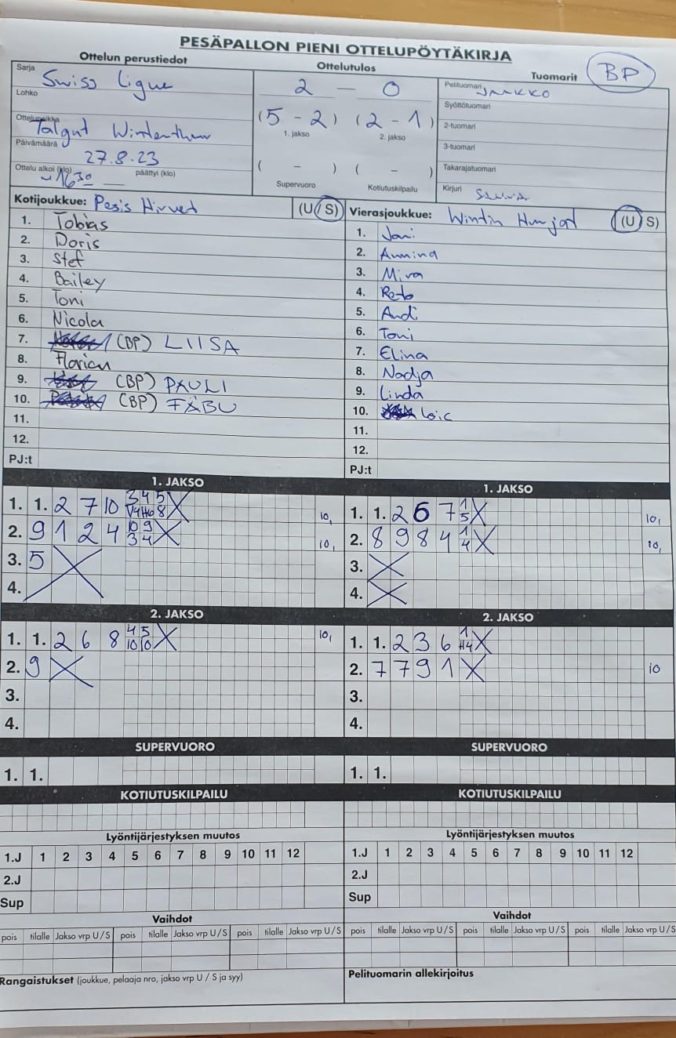 PESÄPALLON PIENI OTTELUPÖYTÄKIRJA
Ottelun perustiedot Ottelutulos Tuomarit BP
Sarja Swiss Ligue 2 – 0 Pelituomari JAAKKO
Lohko (5 – 2) (2 – 1) Syöttötuomari
Ottelupaikka Talgut Winterthur 1. jakso 2. jakso 2-tuomari
Päivämäärä 27.8.23 3-tuomari
( – ) ( – ) Takarajatuomari
Ottelu alkoi (klo) 16³⁰ päättyi (klo) Supervuoro Kotiutuskilpailu Kirjuri
Kotijoukkue: Pesis Hirvet (U/S) Vierasjoukkue: Wintin Hurjat (U/S)
1. Tobias 1. Jani
2. Doris 2. Annina
3. Stef 3. Mira
4. Bailey 4. Reto
5. Toni 5. Andi
6. Nicola 6. Toni
7. (BP) LIISA 7. Elina
8. Florian 8. Nadja
9. (BP) PAULI 9. Linda
10. (BP) FÄBU 10. Loic
11. 11.
12. 12.
PJ:t PJ:t
1. JAKSO 1. JAKSO
1. 1. 2 7 10 3 4 5 X 10, 1. 1. 2 6 7 1 X 10,
8 5
2. 9 1 2 4 10 9 X 10, 2. 8 9 8 4 1 X 10,
3 4 4
3. 5 X 3. X
4. 4. X
2. JAKSO 2. JAKSO
1. 1. 2 6 8 4 5 X 10, 1. 1. 2 3 6 1 X
10 10 H4
2. 9 X 2. 7 7 9 1 X 10
3. 3.
4. 4.
SUPERVUORO SUPERVUORO
1. 1. 1. 1.
KOTIUTUSKILPAILU KOTIUTUSKILPAILU
Lyöntijärjestyksen muutos Lyöntijärjestyksen muutos
1.J 1 2 3 4 5 6 7 8 9 10 11 12 1.J 1 2 3 4 5 6 7 8 9 10 11 12
2.J 2.J
Sup Sup
Vaihdot Vaihdot
pois tilalle Jakso vrp U/S pois tilalle Jakso vrp U/S pois tilalle Jakso vrp U/S pois tilalle Jakso vrp U/S pois tilalle Jakso vrp U/S pois tilalle Jakso vrp U/S
Rangaistukset (joukkue, pelaaja nro, jakso vrp U / S ja syy) Pelituomarin allekirjoitus